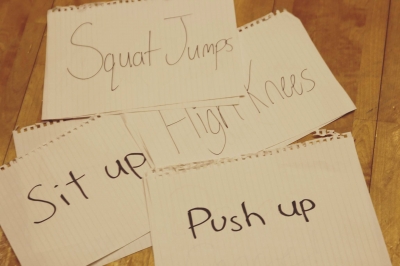 Squat Jumps
High Knees
Sit up
Push up